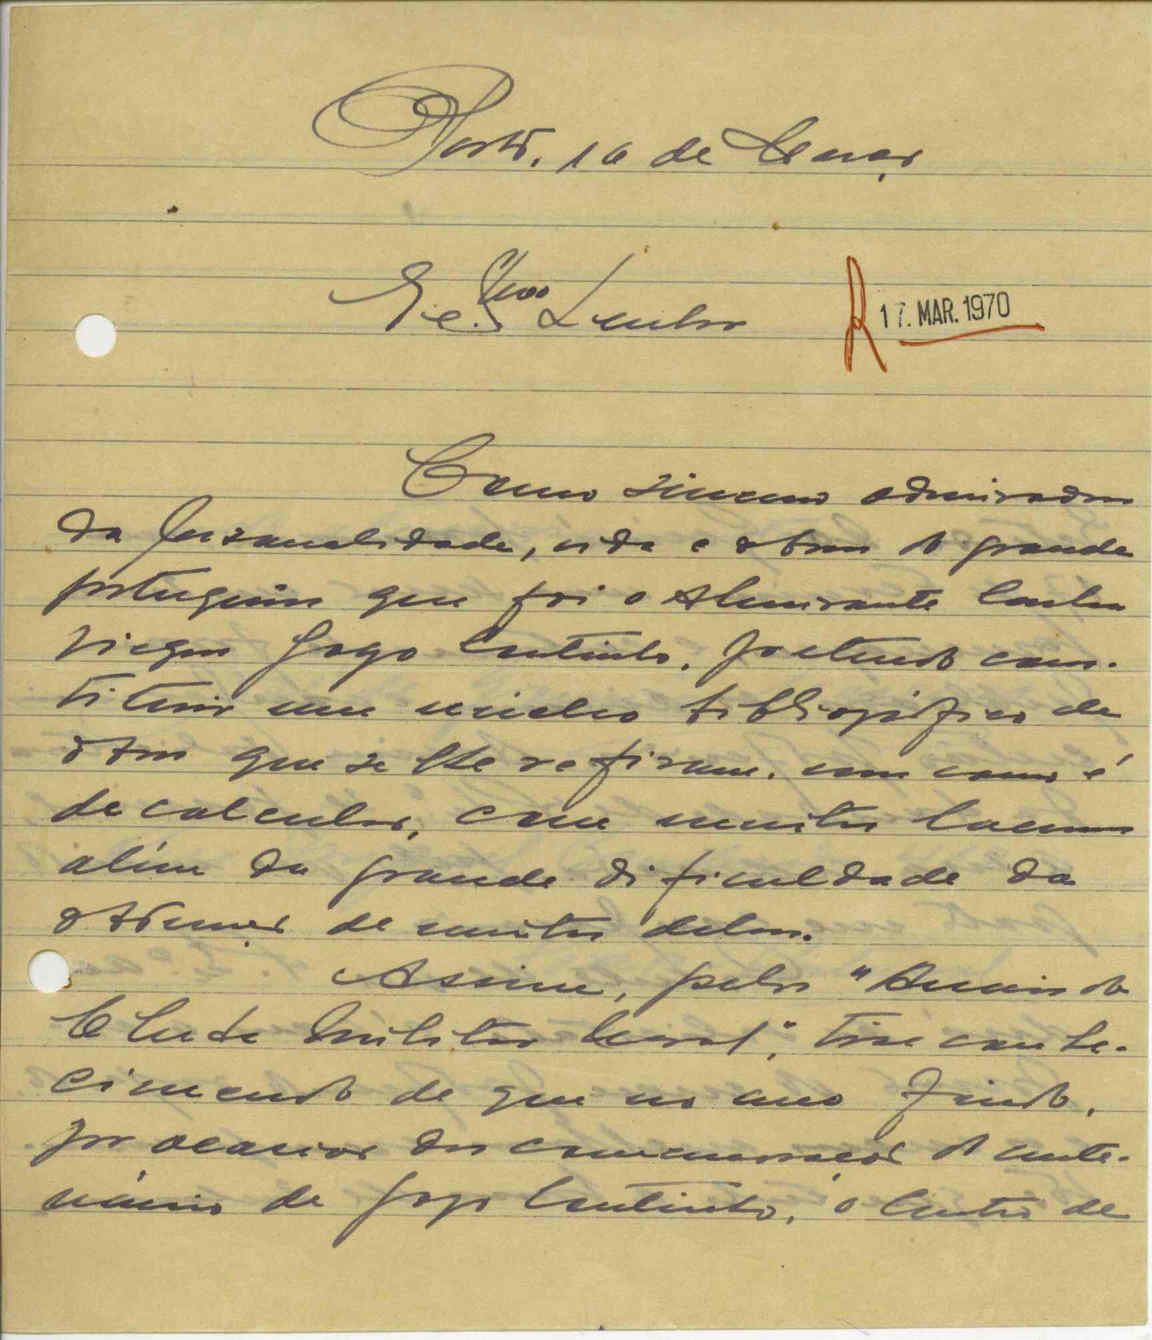 Porto, 16 de Março
Exmo Senhor
R 17. MAR. 1970
Como sincero admirador
da personalidade, vida e obra do grande
português que foi o Almirante Carlos
Viegas Gago Coutinho, pretendo cons-
tituir um núcleo bibliográfico de
obras que se lhe refiram, com como é
de calcular, com muitas lacunas
além da grande dificuldade da
obtenção de muitas delas.
Assim, pelos "Anais do
Clube Militar Naval", tive conhe-
cimento de que no ano findo,
por ocasião das comemorações do cente-
nário de Gago Coutinho, o Centro de